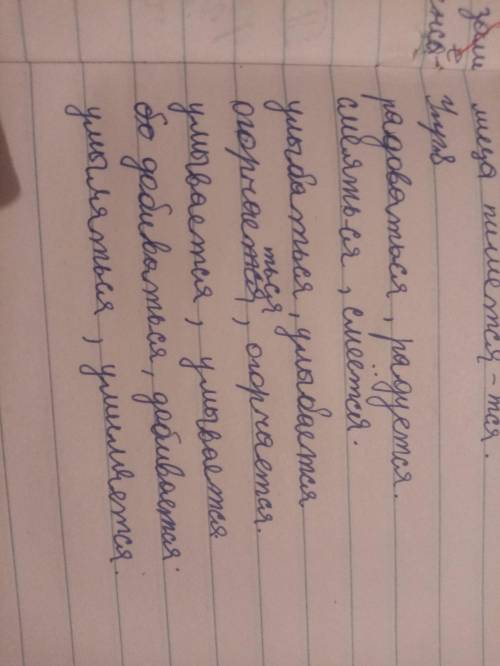 зам
енса-
лица пишется -тся.
Упр
радоваться, радуется.
смеяться, смеется.
улыбаться, улыбается
огорчаеться, огорчается.
умывается, умывается
бо добиваться, добивается.
умыляться, умиляется.